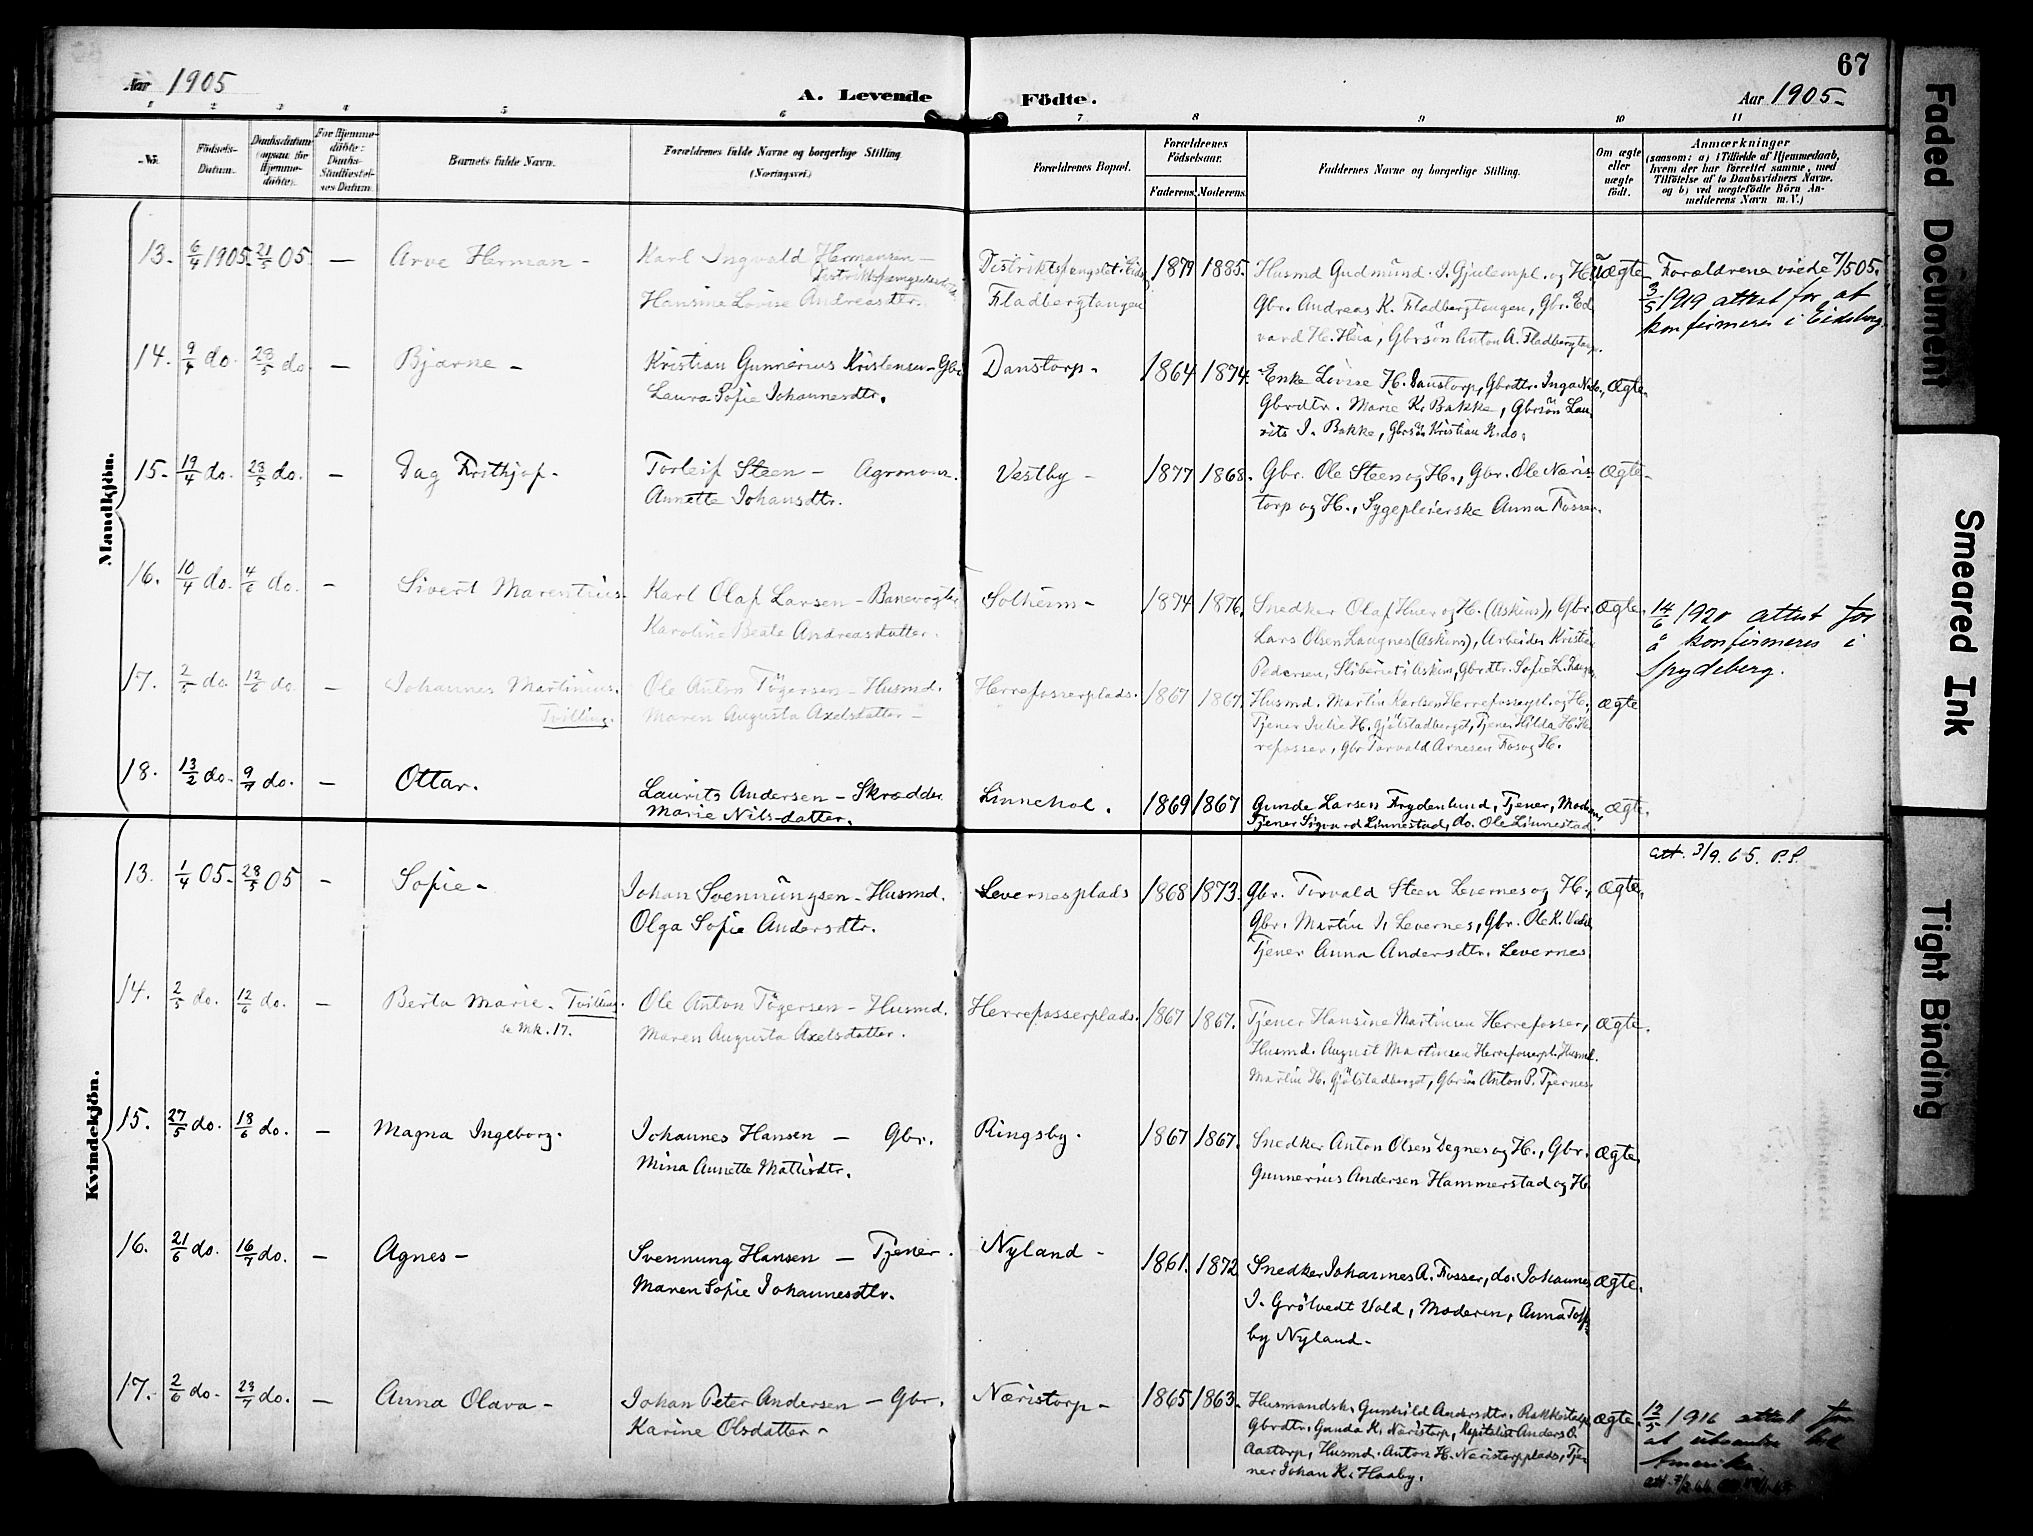 67
Aar 1905
A. Levende Födte.
Aar 1905-
1 2 3 4 5 6 7 8 9 10 11
No.
Födsels-Datum.
Daabsdatum (ogsaa for Hjemme-døbte).
For Hjemme-døbte: Daabs-Stadfæstel-ses Datum.
Barnets fulde Navn.
Forældrenes fulde Navne og borgerlige Stilling (Næringsvei.)
Forældrenes Bopæl.
Forældrenes Födselsaar.
Faderens. Moderens.
Faddernes Navne og borgerlige Stilling.
Om ægte eller uægte födt.
Anmærkninger
(saasom: a) i Tilfælde af Hjemmedaab,
hvem der har forrettet samme, med
Tilföielse af to Daabsvidners Navne.
og b) ved uægtefödte Börn An-
melderens Navn m. V.)
Mandkjön.
13. 6/4 1905. 21/5 05. — Arve Herman - Karl Ingvald Hermansen - 1879 1885. Husmd Gudmund. Uægte- Forældrene viede 7/5 05.
Hansine Lovise Andreasdtr. Fladbergtangen Gbr. Andreas K. Fladbergtangen, Gbr. Ed
vard H. Hæia, Gbrsön Anton A. Fladbergtang.
3/5 1919 attest for at
konfirmeres i Eidsberg.
14. 9/4 do. 23/5 do — Bjarne - Kristian Gunnerius Kristensen - Gbr. Danstorp - 1864 1874. Enke Lovise H. Danstorp, Gbrdtr. Inga N. do., Ægte-
Laura Sofie Johannesdtr. Gbrdtr. Marie K. Bakke, Gbrsön Lau
rits I. Bakke, Gbrsön Kristian K. do.
15. 19/4 do. 23/5 do. — Dag Frithjof - Torleif Steen - Agronom. Vestby - 1877 1868. Gbr. Ole Steen og H., Gbr. Ole Næris- Ægte-
Annette Johansdtr. torp og H., Sygepleierske Anna Fosser.
16. 10/4 do. 4/6 do. — Sivert Marentius. Karl Olaf Larsen - Banevogter Solheim - 1874 1876. Snedker Olaf Huer og H. (Askim), Gbr. Ægte.
Karoline Beate Andreasdatter. Lars Olsen Langnes (Askim), Arbeider Kristian
Pedersen, Sliberiet i Askim, Gbrdtr. Sofie L.
14/6 1920 attest for
å konfirmeres i
Spydeberg.
17. 2/5 do. 12/6 do — Johannes Martinius. Ole Anton Tögersen - Husmd. Herrefosserplads. 1867 1867. Husmd. Martin Karlsen Herrefosserpl. og H., Ægte
Tvilling. Maren Augusta Axelsdatter - Tjener Julie H. Gjölstadberget, Tjener Hilda H. Her
refosser, Gbr Torvald Arnesen Fos og H.
18. 13/2 do. 9/7 do. — Ottar. Laurits Andersen - Skrædder Linnehol. 1869 1867 Gunde Larsen Frydenlund, Tjener, Moderen, Ægte.
Marie Nilsdatter. Tjener Sigvard Linnestad, do. Ole Linnestad.
Kvindekjön.
att. 3/9. 65. P.P.
13. 1/4 05. 28/5 05 — Sofie - Johan Svennungsen - Husmd. Levernesplads 1868 1873. Gbr. Torvald Steen Levernes og H., Ægte.
Olga Sofie Andersdtr. Gbr. Martin I. Levernes, Gbr. Ole K.
Tjener Anna Andersdtr. Levernes
14. 2/5 do. 12/6 do. — Berta Marie. Tvilling. Ole Anton Tögersen - Husmd. Herrefosserplads. 1867 1867. Tjener Hansine Martinsen Herrefosser, Ægte.
se Mk. 17. Maren Augusta Axelsdatter. Husmd. August Martinsen Herrefosserpl., Husmd.
Martin H. Gjölstadberget, Gbrsön Anton P. Tjernes
15. 27/5 do. 18/6 do. — Magna Ingeborg. Johannes Hansen — Gbr. Ringsby. 1867 1867. Snedker Anton Olsen Degnes og H., Gbr. Ægte
Mina Annette Mathisdtr. Gunnerius Andersen Hammerstad og H.
16. 21/6 do. 16/7 do. — Agnes - Svennung Hansen — Tjener. Nyland - 1861. 1872 Snedker Johannes A. Fosser, do. Johannes Ægte.
Maren Sofie Johannesdtr. I. Grölvedt Vold, Moderen, Anna Torp-
by Nyland -
17. 2/6 do. 23/7 do. — Anna Olava - Johan Peter Andersen — Gbr. Næristorp - 1865 1863. Husmandsk. Gunhild Andersdtr. Rakkestad, Ægte.
Karine Olsdatter - Gbrdtr. Gunda K. Næristorp, Kapitalist Anders O.
Aastorp, Husmd. Anton H. Næristorpplads, Tje
ner Johan K. Haaby.
12/5 1916 attest for
at utvandre til
Amerika.
Faded Document
Smeared Ink
Tight Binding